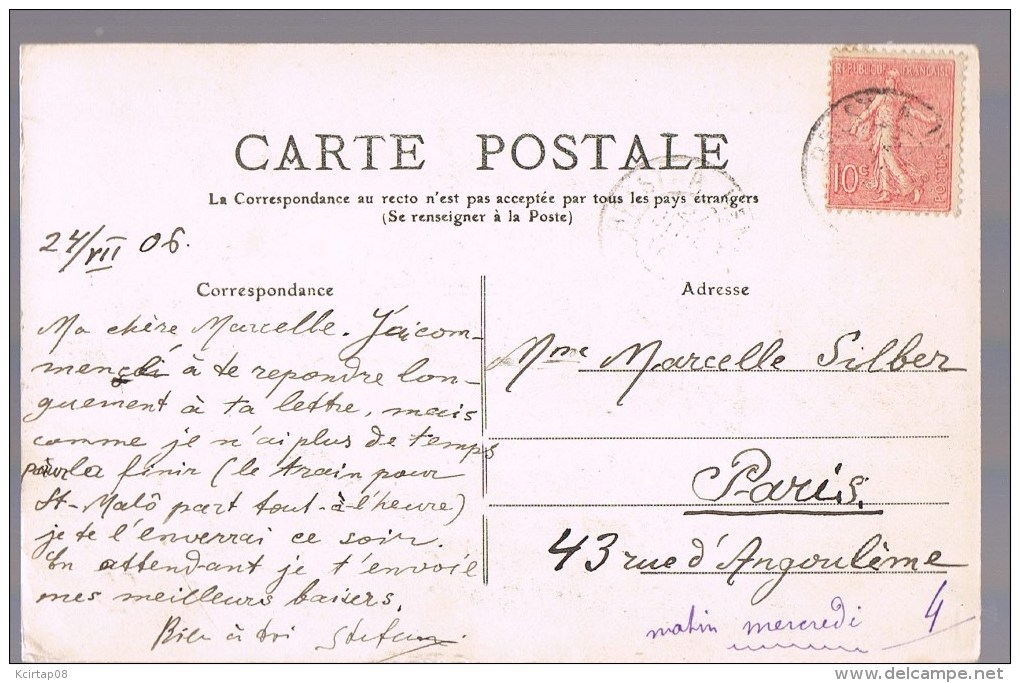 RÉPUBLIQUE FRANÇAISE
10c
CARTE POSTALE
La Correspondance au recto n'est pas acceptée par tous les pays étrangers
(Se renseigner à la Poste)
24/VII 06.
Correspondance
Ma chère Marcelle. J'ai com-
mencé à te repondre lon-
guement à ta lettre, mais
comme je n'ai plus de temps
pour la finir (le train pour
St-Malô part tout-à-l'heure)
je te l'enverrai ce soir.
En attendant je t'envoie
mes meilleurs baisers.
Bien à toi Stefan
Adresse
Mme Marcelle Silber
Paris.
43 rue d'Angoulême
matin mercredi 4
Kcirtap08
www.delcampe.net